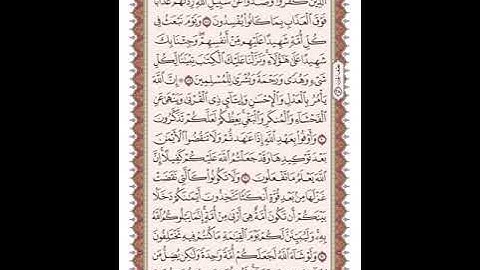 ٱلَّذِينَ كَفَرُوا۟ وَصَدُّوا۟ عَن سَبِيلِ ٱللَّهِ زِدْنَٰهُمْ عَذَابًا
فَوْقَ ٱلْعَذَابِ بِمَا كَانُوا۟ يُفْسِدُونَ ۝ وَيَوْمَ نَبْعَثُ فِى
كُلِّ أُمَّةٍ شَهِيدًا عَلَيْهِم مِّنْ أَنفُسِهِمْ ۖ وَجِئْنَا بِكَ
شَهِيدًا عَلَىٰ هَٰٓؤُلَآءِ ۚ وَنَزَّلْنَا عَلَيْكَ ٱلْكِتَٰبَ تِبْيَٰنًا لِّكُلِّ
شَىْءٍ وَهُدًى وَرَحْمَةً وَبُشْرَىٰ لِلْمُسْلِمِينَ ۝ ۞ إِنَّ ٱللَّهَ
يَأْمُرُ بِٱلْعَدْلِ وَٱلْإِحْسَٰنِ وَإِيتَآئِ ذِى ٱلْقُرْبَىٰ وَيَنْهَىٰ عَنِ
ٱلْفَحْشَآءِ وَٱلْمُنكَرِ وَٱلْبَغْىِ ۚ يَعِظُكُمْ لَعَلَّكُمْ تَذَكَّرُونَ
۝ وَأَوْفُوا۟ بِعَهْدِ ٱللَّهِ إِذَا عَٰهَدتُّمْ وَلَا تَنقُضُوا۟ ٱلْأَيْمَٰنَ
بَعْدَ تَوْكِيدِهَا وَقَدْ جَعَلْتُمُ ٱللَّهَ عَلَيْكُمْ كَفِيلًا ۚ إِنَّ
ٱللَّهَ يَعْلَمُ مَا تَفْعَلُونَ ۝ وَلَا تَكُونُوا۟ كَٱلَّتِى نَقَضَتْ
غَزْلَهَا مِنۢ بَعْدِ قُوَّةٍ أَنكَٰثًا تَتَّخِذُونَ أَيْمَٰنَكُمْ دَخَلًۢا
بَيْنَكُمْ أَن تَكُونَ أُمَّةٌ هِىَ أَرْبَىٰ مِنْ أُمَّةٍ ۚ إِنَّمَا يَبْلُوكُمُ ٱللَّهُ
بِهِۦ ۚ وَلَيُبَيِّنَنَّ لَكُمْ يَوْمَ ٱلْقِيَٰمَةِ مَا كُنتُمْ فِيهِ تَخْتَلِفُونَ
۝ وَلَوْ شَآءَ ٱللَّهُ لَجَعَلَكُمْ أُمَّةً وَٰحِدَةً وَلَٰكِن يُضِلُّ مَن